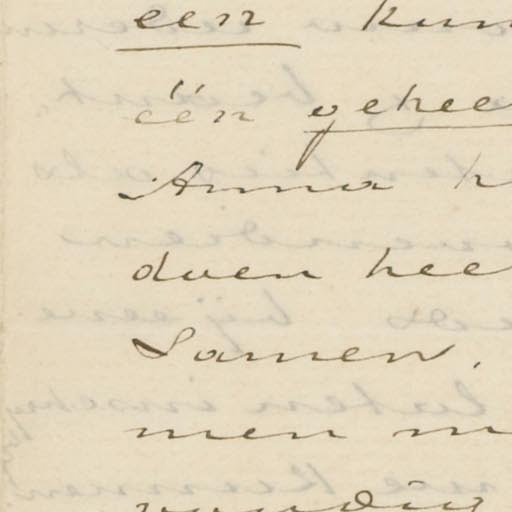 een kun
één gehee
Anna h
doen hee
Samen.
men m